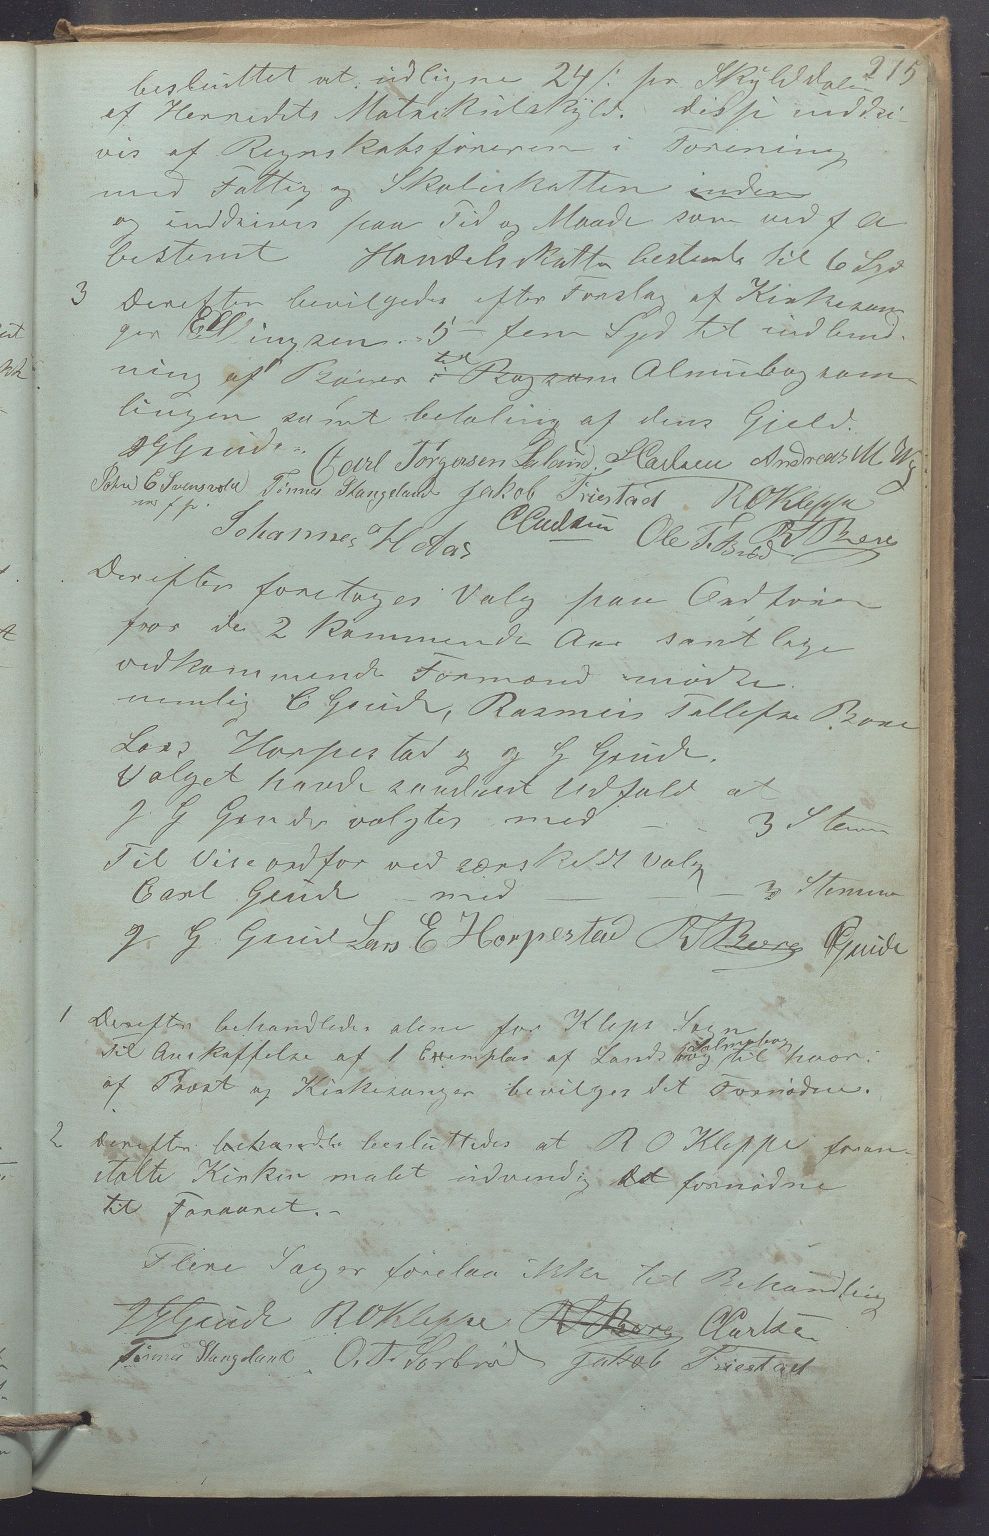 215
besluttet at udligne 24 /: pr Skylddaler
af Herredets Matrikulskyld. disse inddri-
ves af Regnskabsføreren i Forening
med Fattig og Skoleskatten inden
og inddrives paa Tid og Maade som ved f A
bestemt Handelsskatten bestemtes til 6 Spd
3 Derefter bevilgedes efter Forslag af Kirkesan-
ger Ellingsen 5 - fem Spd til indbind-
ning af Bøger i til Bogsam Almuebogsam-
lingen samt betaling af dens Gjeld.
J G Grude. Carl Torgersen Laland. Andreas M. Wig
Peder E Svensvold Tønnes Stangeland Jakob Friestad R O Kleppe
Johannes H Aas C Carlsen Ole T. Brød R T Bore
Derefter foretages Valg paa Ordfører
for de 2 kommende Aar samtlige
vedkommende Formænd mødte.
nemlig C Grude, Rasmus Tollefsen Bore
Lars Horpestad og J G Grude.
Valget havde saadant Udfald at
J. G Grude valgtes med - - 3 Stemmer
Til Viseordfør ved særskildt Valg
Carl Grude - med - - 3 Stemmer
J. G. Grude Lars E Horpestad R T Bore C Grude
1 Derefter behandledes alene for Klepp Sogn
Til Anskaffelse af 1 Exemplar af Landstads Salmebog til hver:
af Præst og Kirkesanger bevilges det Fornødne.
2 Derefter behandle besluttedes at R O Kleppe foran-
stalte Kirken malet indvendig det fornødne
til Foraaret. -
Flere Sager forelaa ikke til Behandling
J G Grude R O Kleppe R T Bore C Carlsen
Tønnes Stangeland O. T. Sørbrød Jakob Friestad